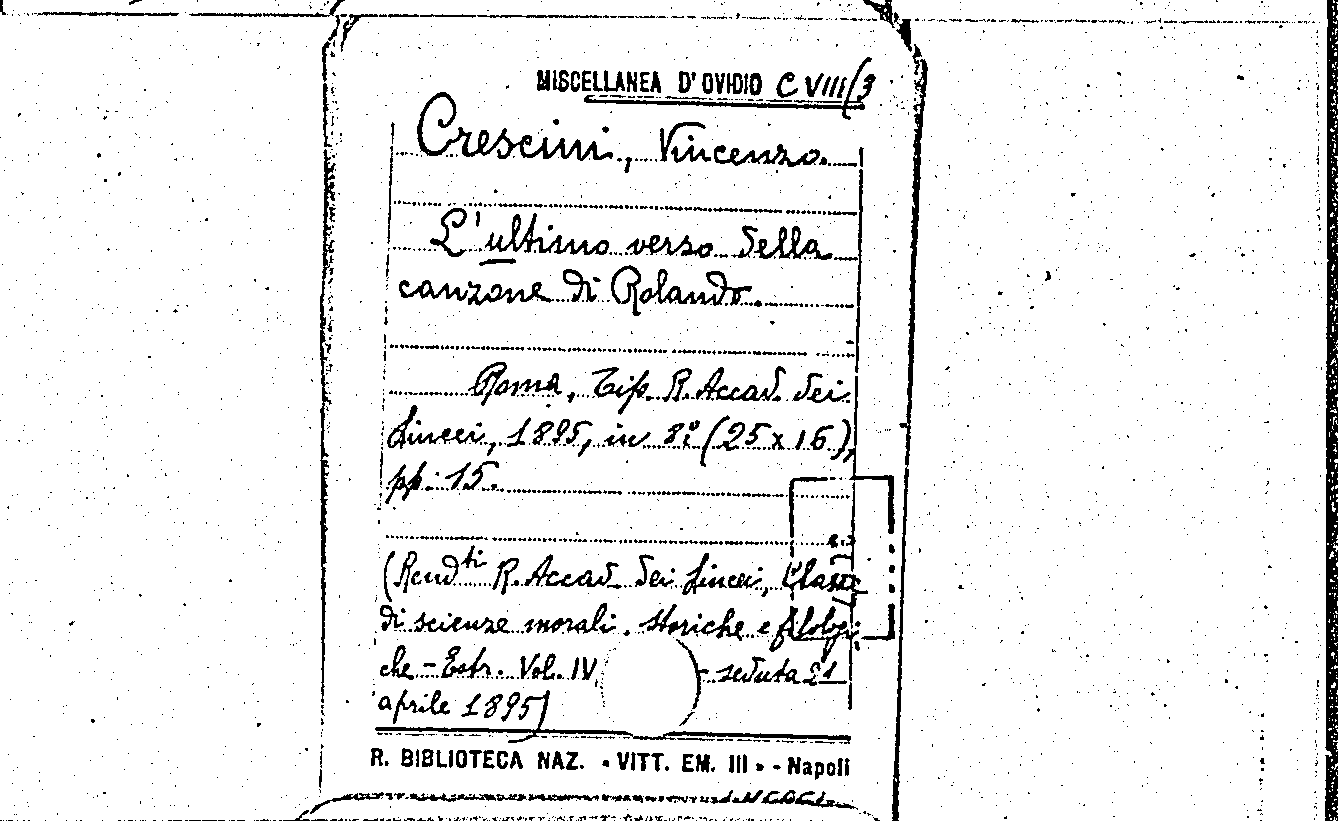 MISCELLANEA D'OVIDIO C VIII/3
Crescini, Vincenzo.
L'ultimo verso della
canzone di Rolando.
Roma, Tip. R. Accad. dei
Lincei, 1895, in 8º (25 x 16),
pp. 15.
(Rend.ti R. Accad. dei Lincei, Classe
di scienze morali, storiche e filologi-
che - Estr. Vol. IV, - seduta 21
aprile 1895)
R. BIBLIOTECA NAZ. « VITT. EM. III » - Napoli